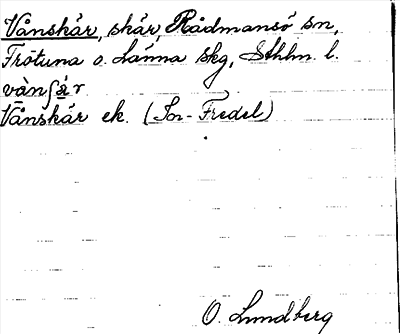 Vånskär, skär, Rådmansö sn,
Frötuna o. Länna skg, Sthlm. l.
vànʃä́r
Vånskär ek. (Sor-Fredel)
O. Lundberg